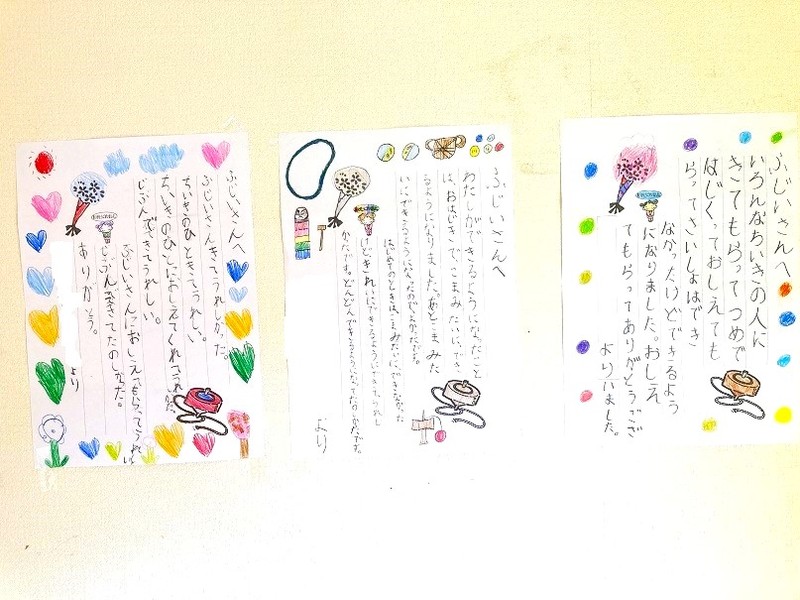 ふじいさんへ
ふじいさんきてうれしかった。
ちいきのひときてうれしい。
ちいきのひとにおしえてくれてうれしいな。
じぶんできてうれしい。
ふじいさんにおしえてもらってうれしい
たのしみた。
ありがとう。
より
ふじいさんへ
わたしができるようになったこと
は、おはじきでこまみたいに、でき
るようになりました。
はじめてのときは、こまみたいにできなかった
けどきれいにできるようになってきてうれし
かったです。どんどんできるようになってたのしかたです。
より
ふじいさんへ
いろんなちいきの人に
きてもらってつめで
はじくっておしえても
らってさいしょはでき
なかったけどできるよう
になりました。おしえ
てもらってありがとうござ
いました。
より